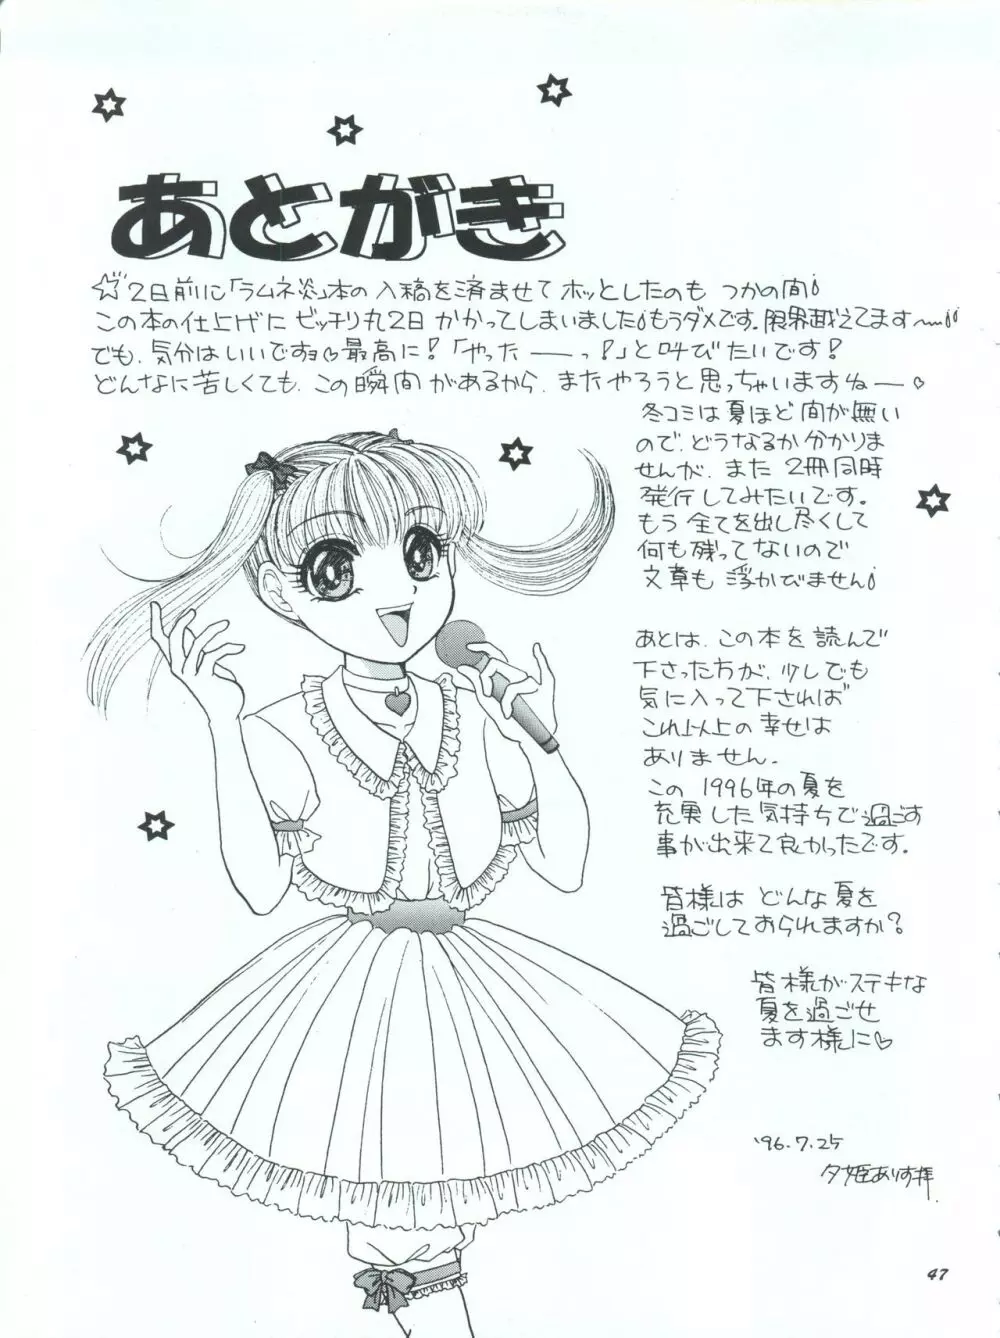 あとがき
☆2日前に「ラムネ炎」本の入稿を済ませてホッとしたのもつかの間!
この本の仕上げにビッチリ丸2日かかってしまいました!もうダメです。限界越えてます〜!!
でも、気分はいいですョ♡最高に!「やったーーっ!」と叫びたいです!
どんなに苦しくても、この瞬間があるから、またやろうと思っちゃいますねー♡
冬コミは夏ほど間が無い
ので、どうなるか分かりま
せんが、また2冊同時
発行してみたいです。
もう全てを出し尽くして
何も残ってないので
文章も浮かびません!
あとは、この本を読んで
下さった方が、少しでも
気に入って下されば
これ以上の幸せは
ありません。
この1996年の夏を
充実した気持ちで過ごす
事が出来て良かったです。
皆様はどんな夏を
過ごしておられますか?
皆様がステキな
夏を過ごせ
ます様に♡
'96.7.25
夕姫ありす拝
47